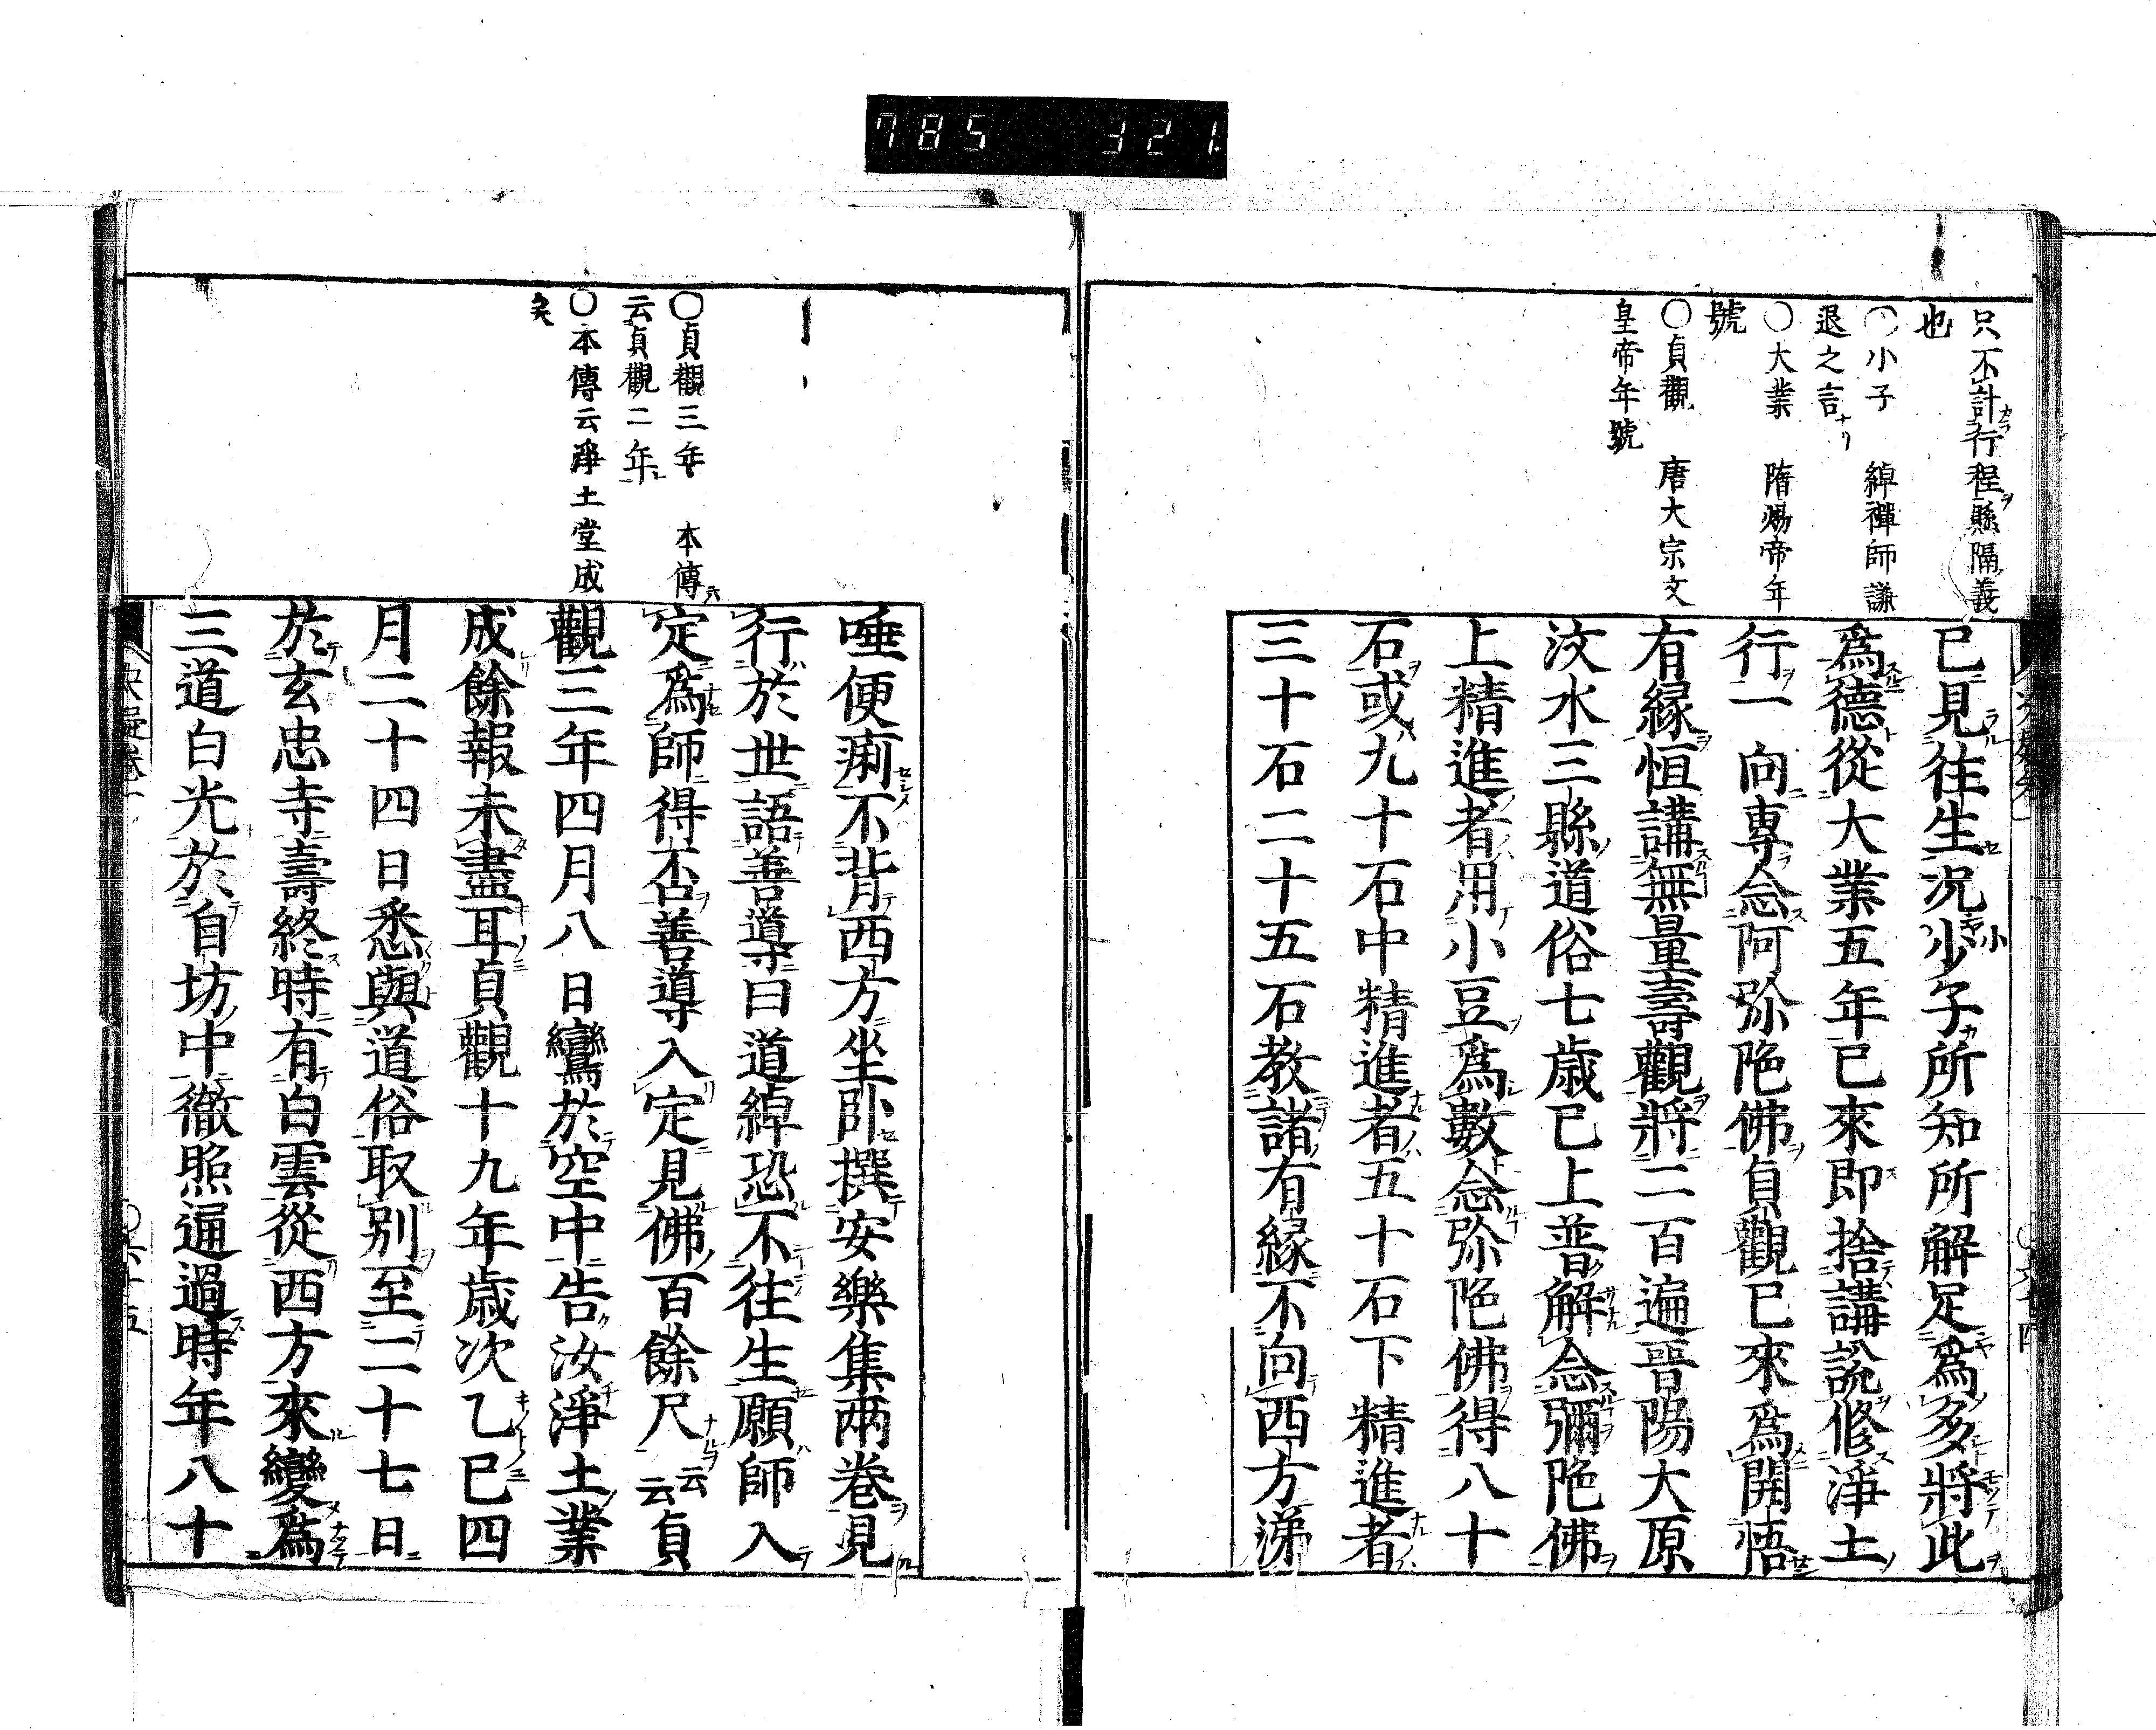 785 321
只不計行程懸隔義
也
○小子 綽禪師謙
退之言ナリ
○大業 隋煬帝年
號
○貞觀 唐大宗文
皇帝年號
已見往生况少子所知所解足爲多將此
爲德從大業五年已來即捨講說修淨土
行一向專念阿弥陁佛貞觀已來爲開悟
有緣恒講無量壽觀將二百遍晉陽大原
汶水三縣道俗七歲已上普解念彌陁佛
上精進者用小豆爲數念弥陁佛得八十
石或九十石中精進者五十石下精進者
三十石二十五石教諸有緣不向西方涕
○貞觀三年 本傳
云貞觀二年
○本傳云淨土堂成
矣
唾便痢不背西方坐卧撰安樂集兩卷見
行於世語善導曰道綽恐不往生願師入
定爲師得否善導入定見佛百餘尺云云貞
觀三年四月八日鸞於空中告汝淨土業
成餘報未盡耳貞觀十九年歲次乙巳四
月二十四日悉與道俗取別至二十七日
於玄忠寺壽終時有白雲從西方來變爲
三道白光於自坊中徹照遍過時年八十